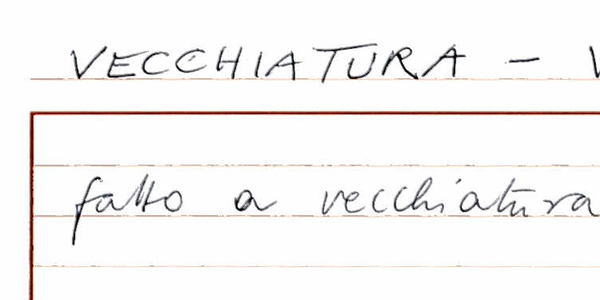 VECCHIATURA –
fatto a vecchiatura